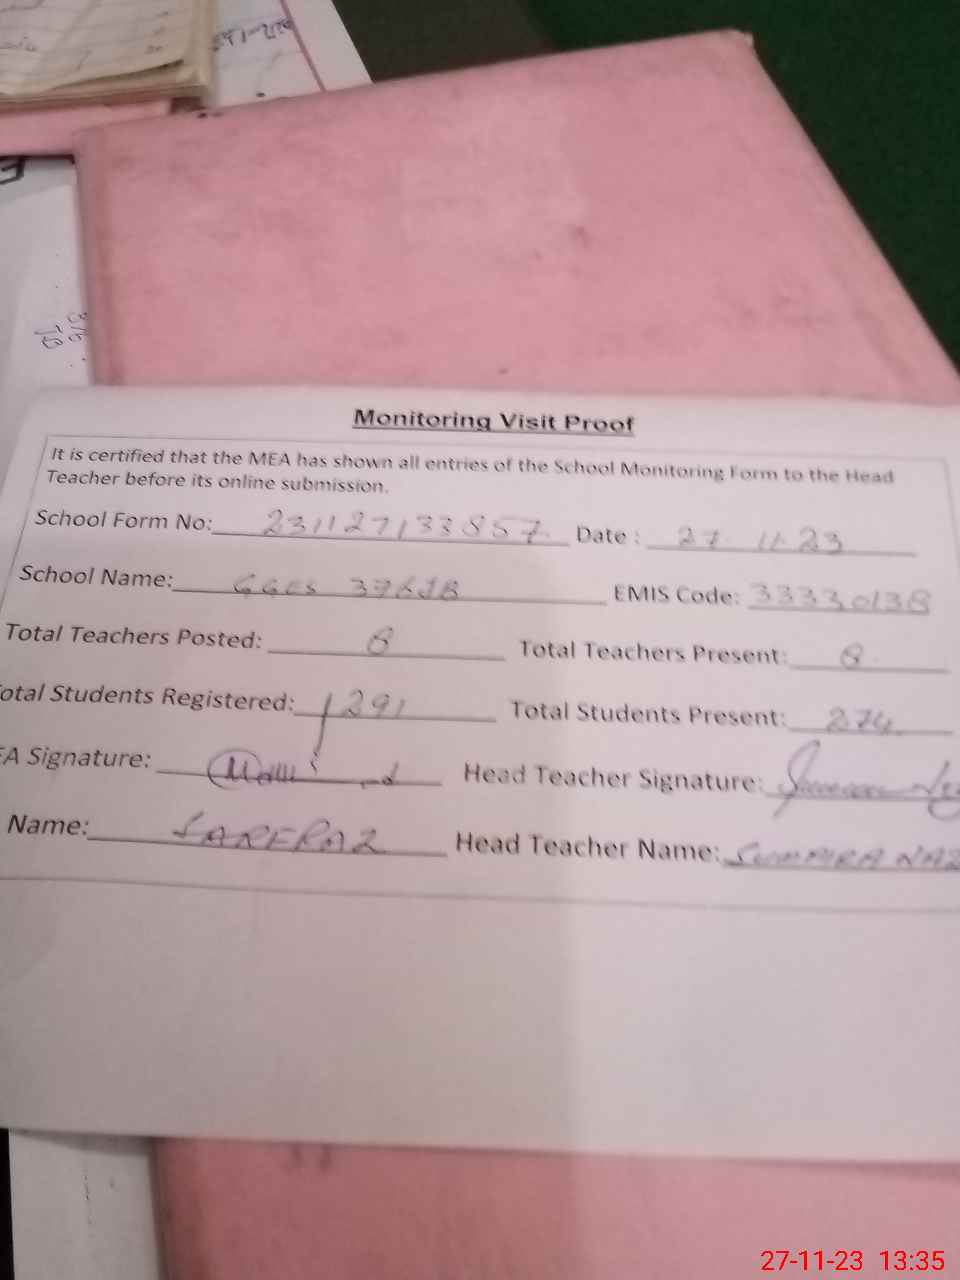 Monitoring Visit Proof
It is certified that the MEA has shown all entries of the School Monitoring Form to the Head
Teacher before its online submission.
School Form No: 231127133857 Date : 27.11.23
School Name: GGES 376JB EMIS Code: 33330138
Total Teachers Posted: 8 Total Teachers Present: 8
otal Students Registered: 291 Total Students Present: 274
EA Signature: Head Teacher Signature:
Name: SARFRAZ Head Teacher Name: SUMAIRA NAZ
27-11-23 13:35